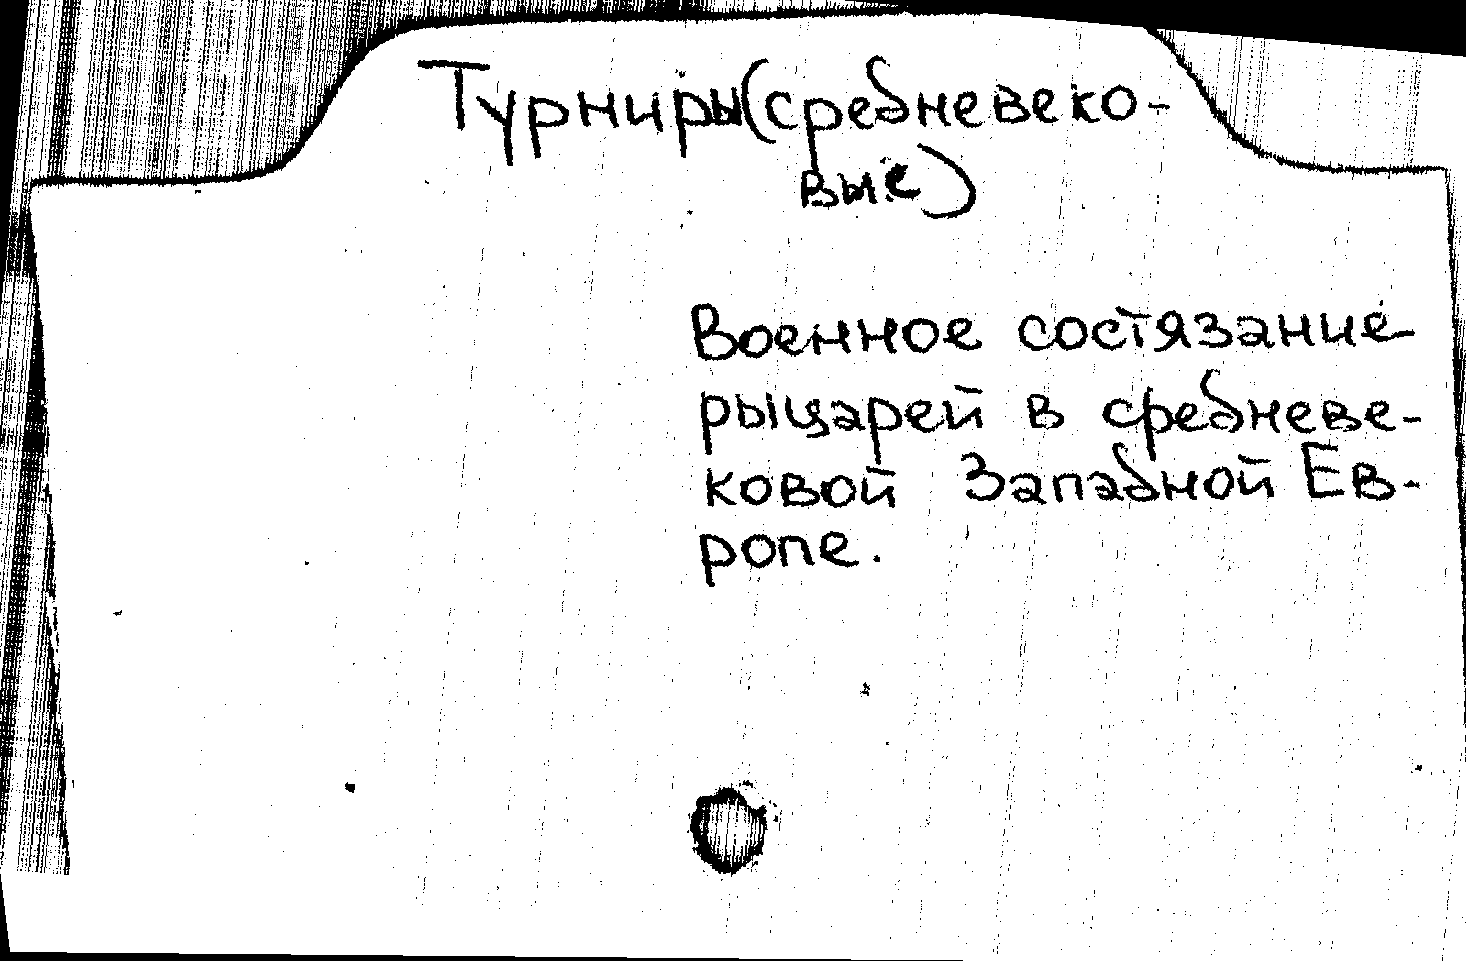 Турниры(средневеко-
вые)
Военное состязание
рыцарей в средневе-
ковой Западной Ев-
ропе.